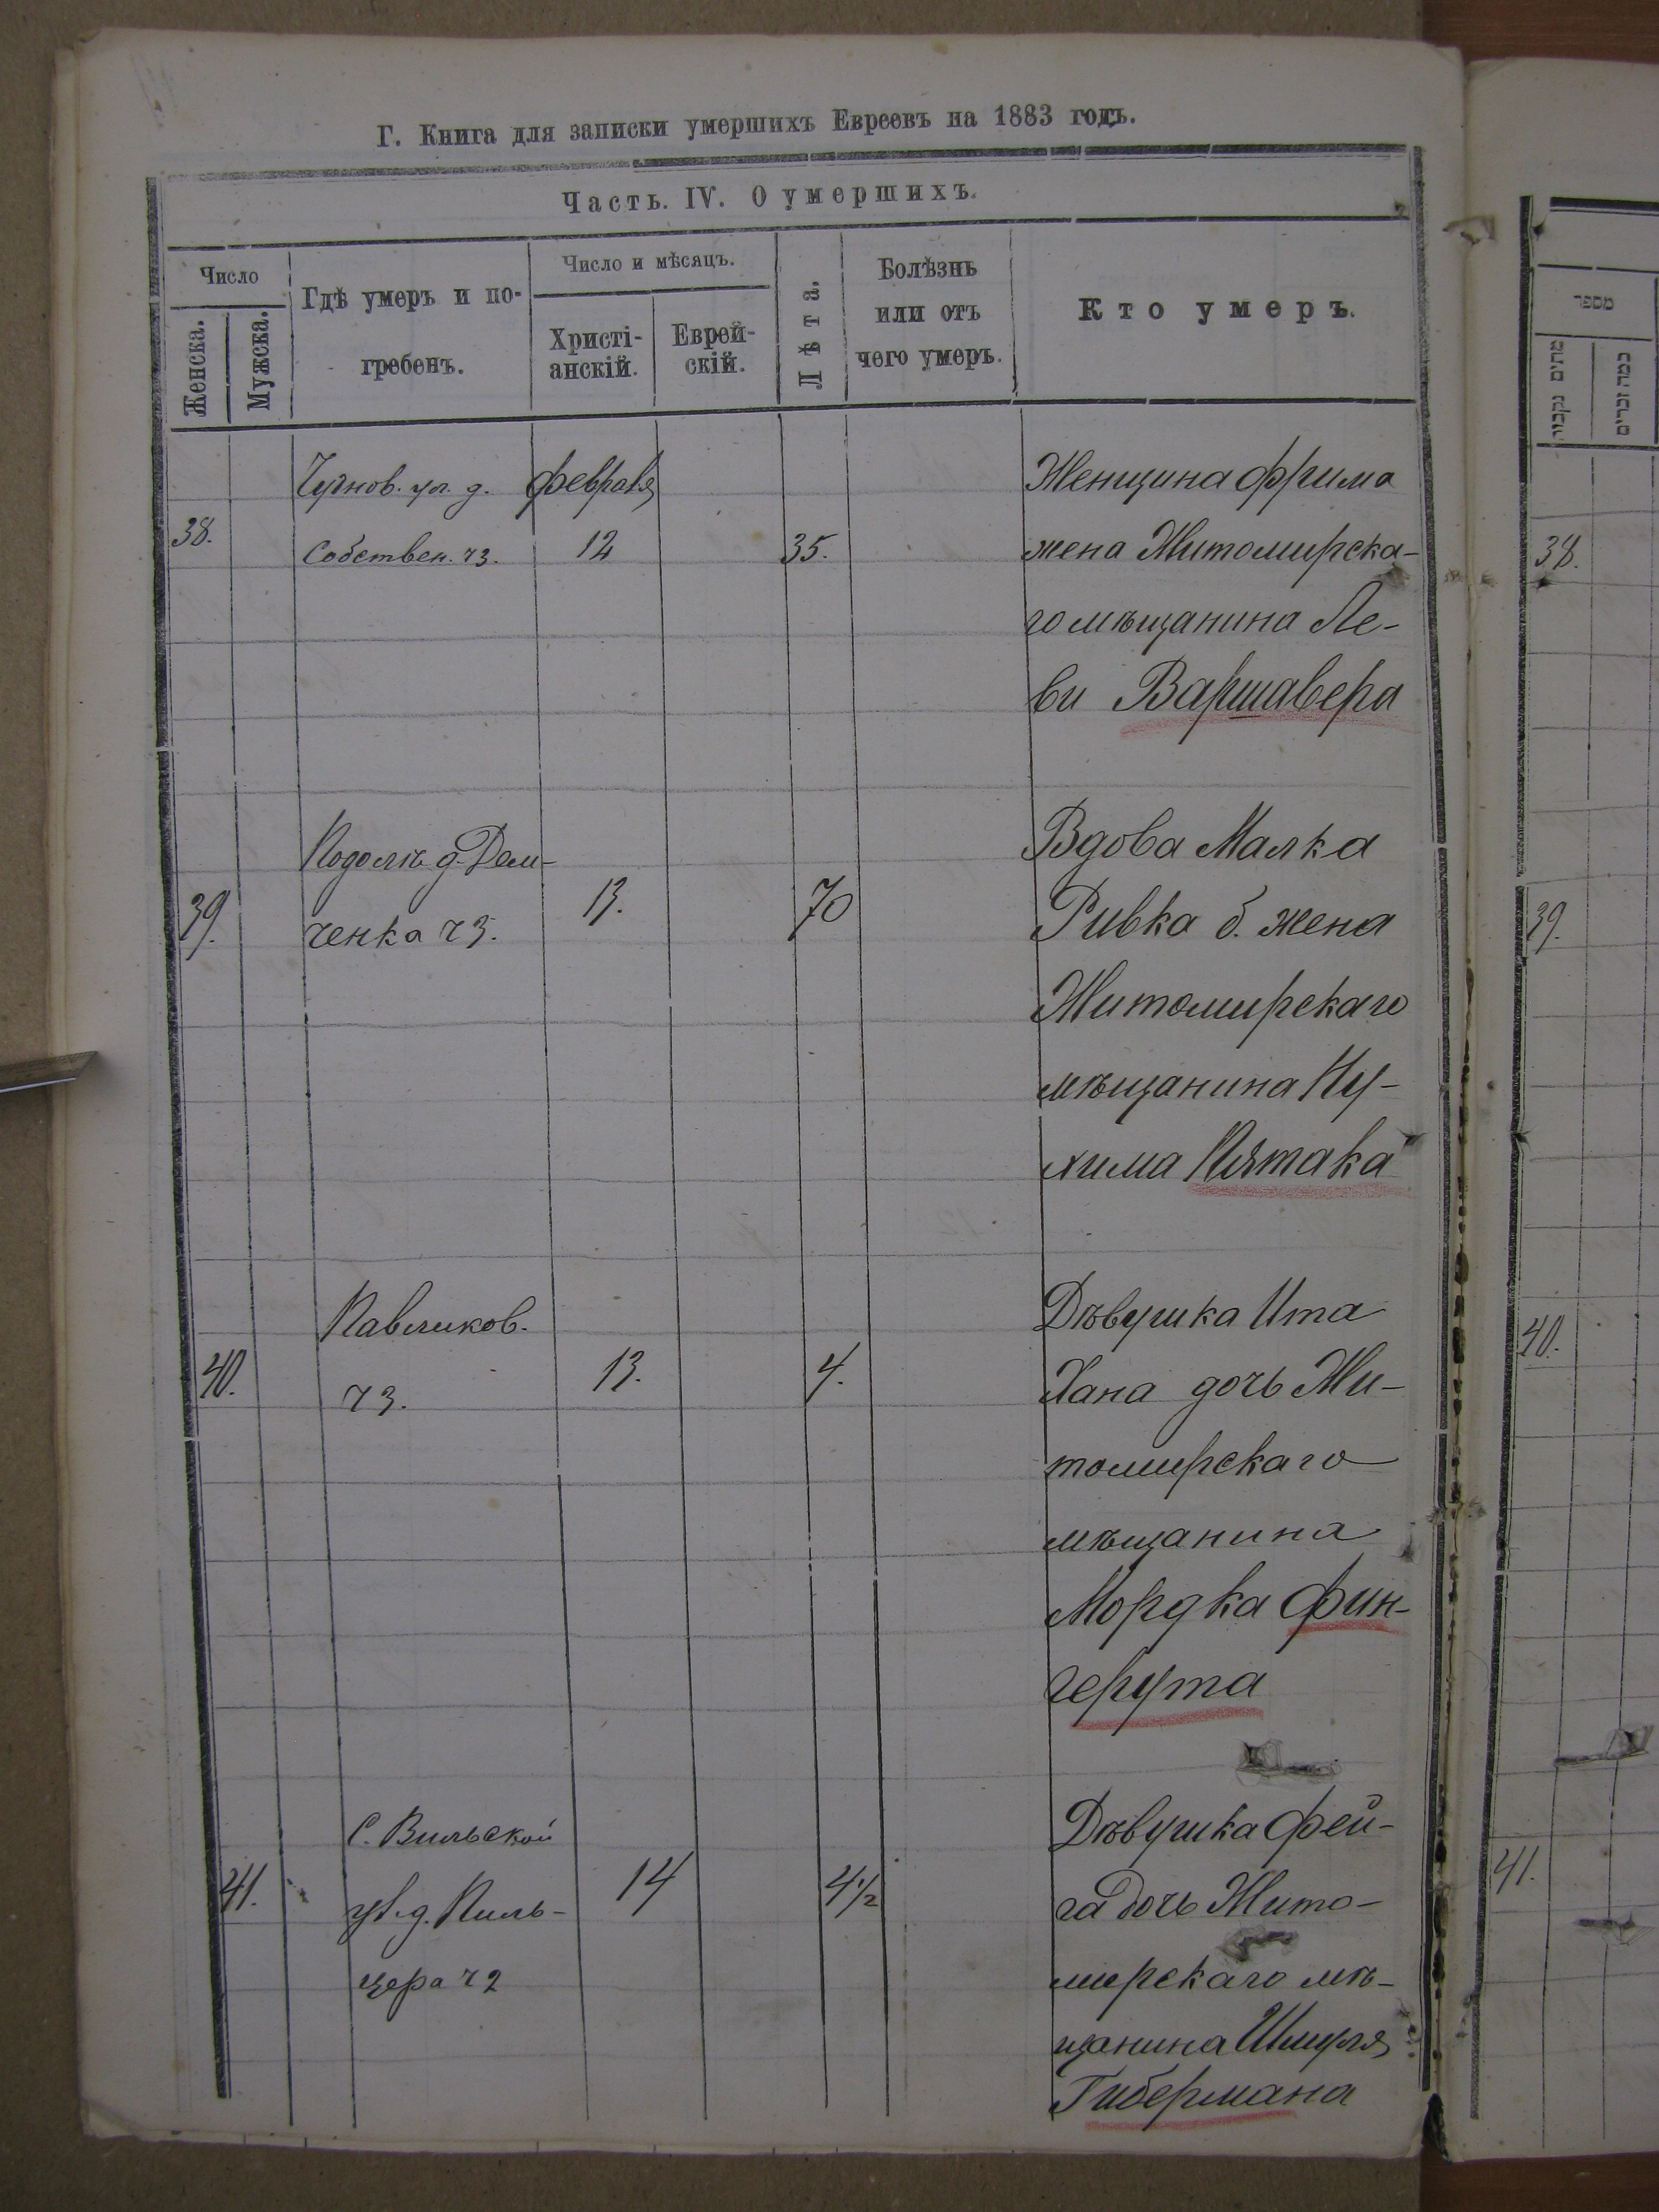 Г. Книга для записки умершихъ Евреевъ на 1883 годъ.
Часть. IV. О умершихъ.
Число
Женска.
Мужска.
Гдѣ умеръ и по-
гребенъ.
Число и мѣсяцъ.
Христі-
анскій.
Еврей-
скій.
Лѣта.
Болѣзнь
или отъ
чего умеръ.
Кто умеръ.
38.
Чуднов. ул. д.
Собствен. ч3.
февраля
12
35.
Женщина Фрима
жена Житомирска-
го мѣщанина Ле-
ви Варшавера
39.
Подолѣ д. Дем-
ченка ч3.
13.
70
Вдова Малка
Ривка б. жена
Житомирскаго
мѣщанина Ну-
хима Пятака
40.
Павликов.
ч3.
13.
4.
Дѣвушка Ита
Хана дочь Жи-
томирскаго
мѣщанина
Мордка Фин-
герута
41.
С. Вильской
ул. д. Пиль-
цера ч2
14
4 1/2
Дѣвушка Фей-
га дочь Жито-
мирскаго мѣ-
щанина Шмуля
Гибермана
מספר
מתים נקבות
38.
39.
40.
41.